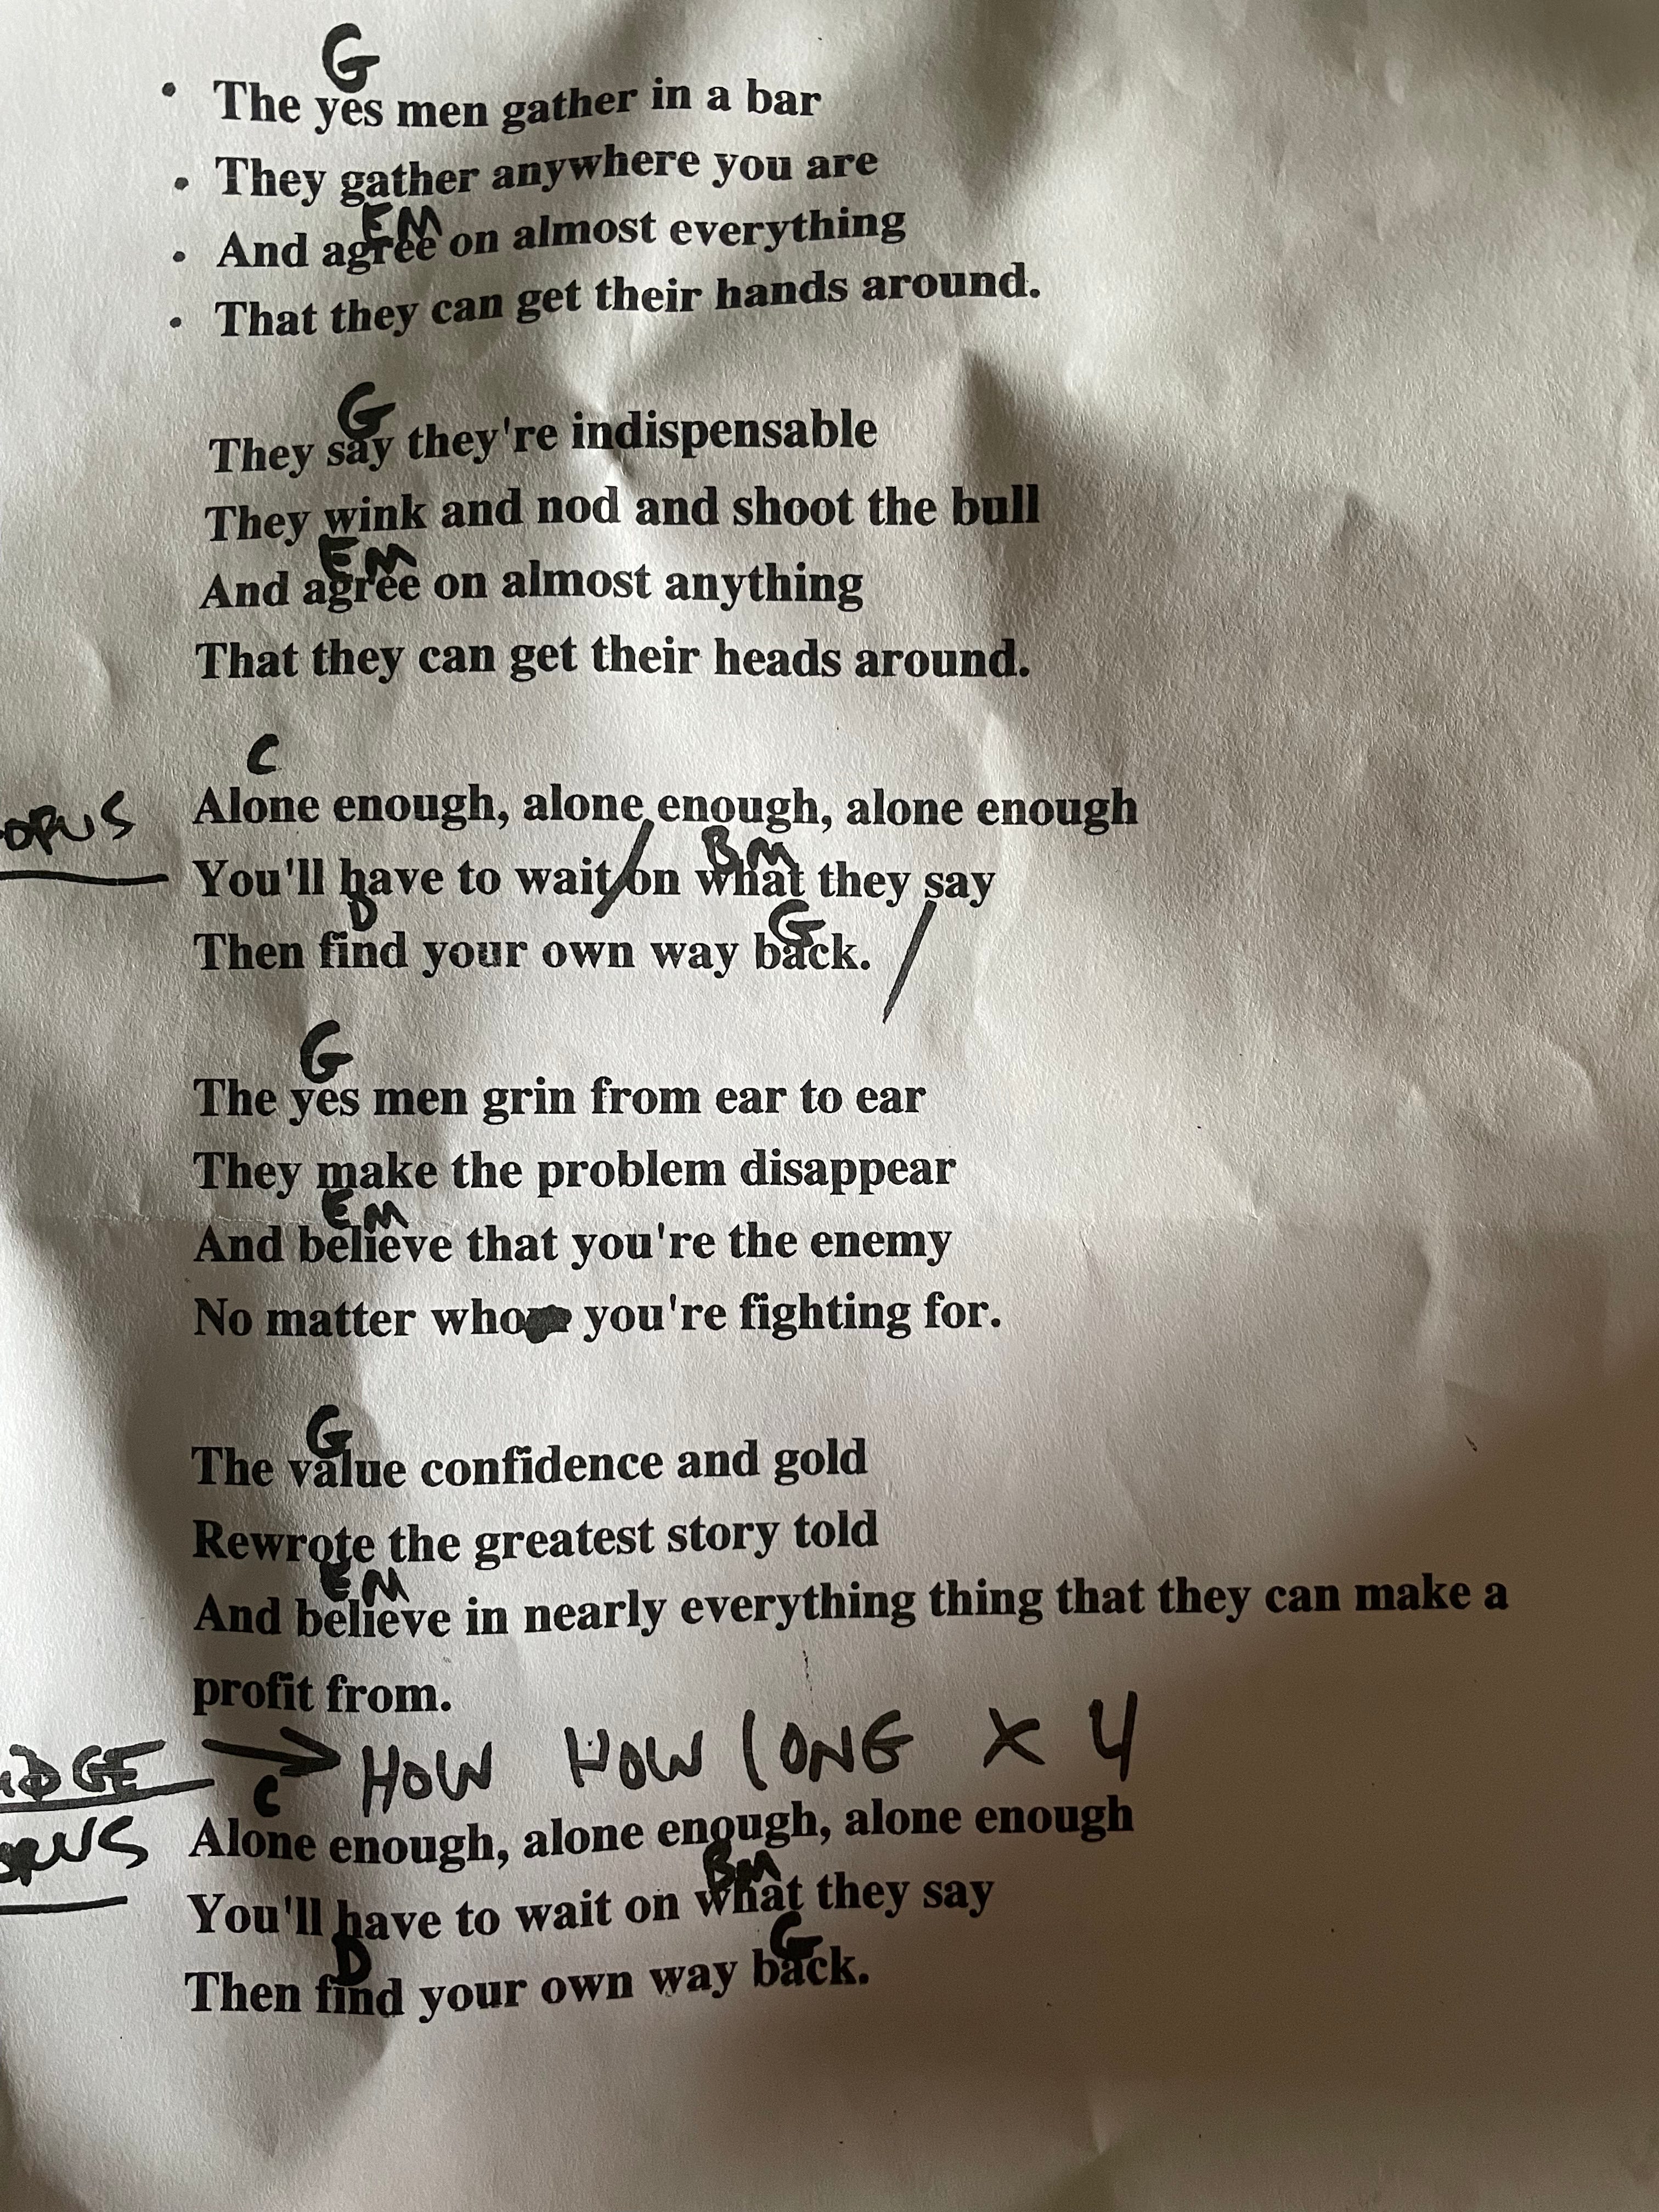 G
• The yes men gather in a bar
• They gather anywhere you are
EM
• And agree on almost everything
• That they can get their hands around.
G
They say they're indispensable
They wink and nod and shoot the bull
EM
And agree on almost anything
That they can get their heads around.
C
ORUS Alone enough, alone enough, alone enough
BM
You'll have to wait / on what they say /
D G
Then find your own way back.
G
The yes men grin from ear to ear
They make the problem disappear
EM
And believe that you're the enemy
No matter who you're fighting for.
G
The value confidence and gold
Rewrote the greatest story told
EM
And believe in nearly everything thing that they can make a
profit from.
IDGE → HOW HOW LONG X 4
C
ORUS Alone enough, alone enough, alone enough
BM
You'll have to wait on what they say
D G
Then find your own way back.